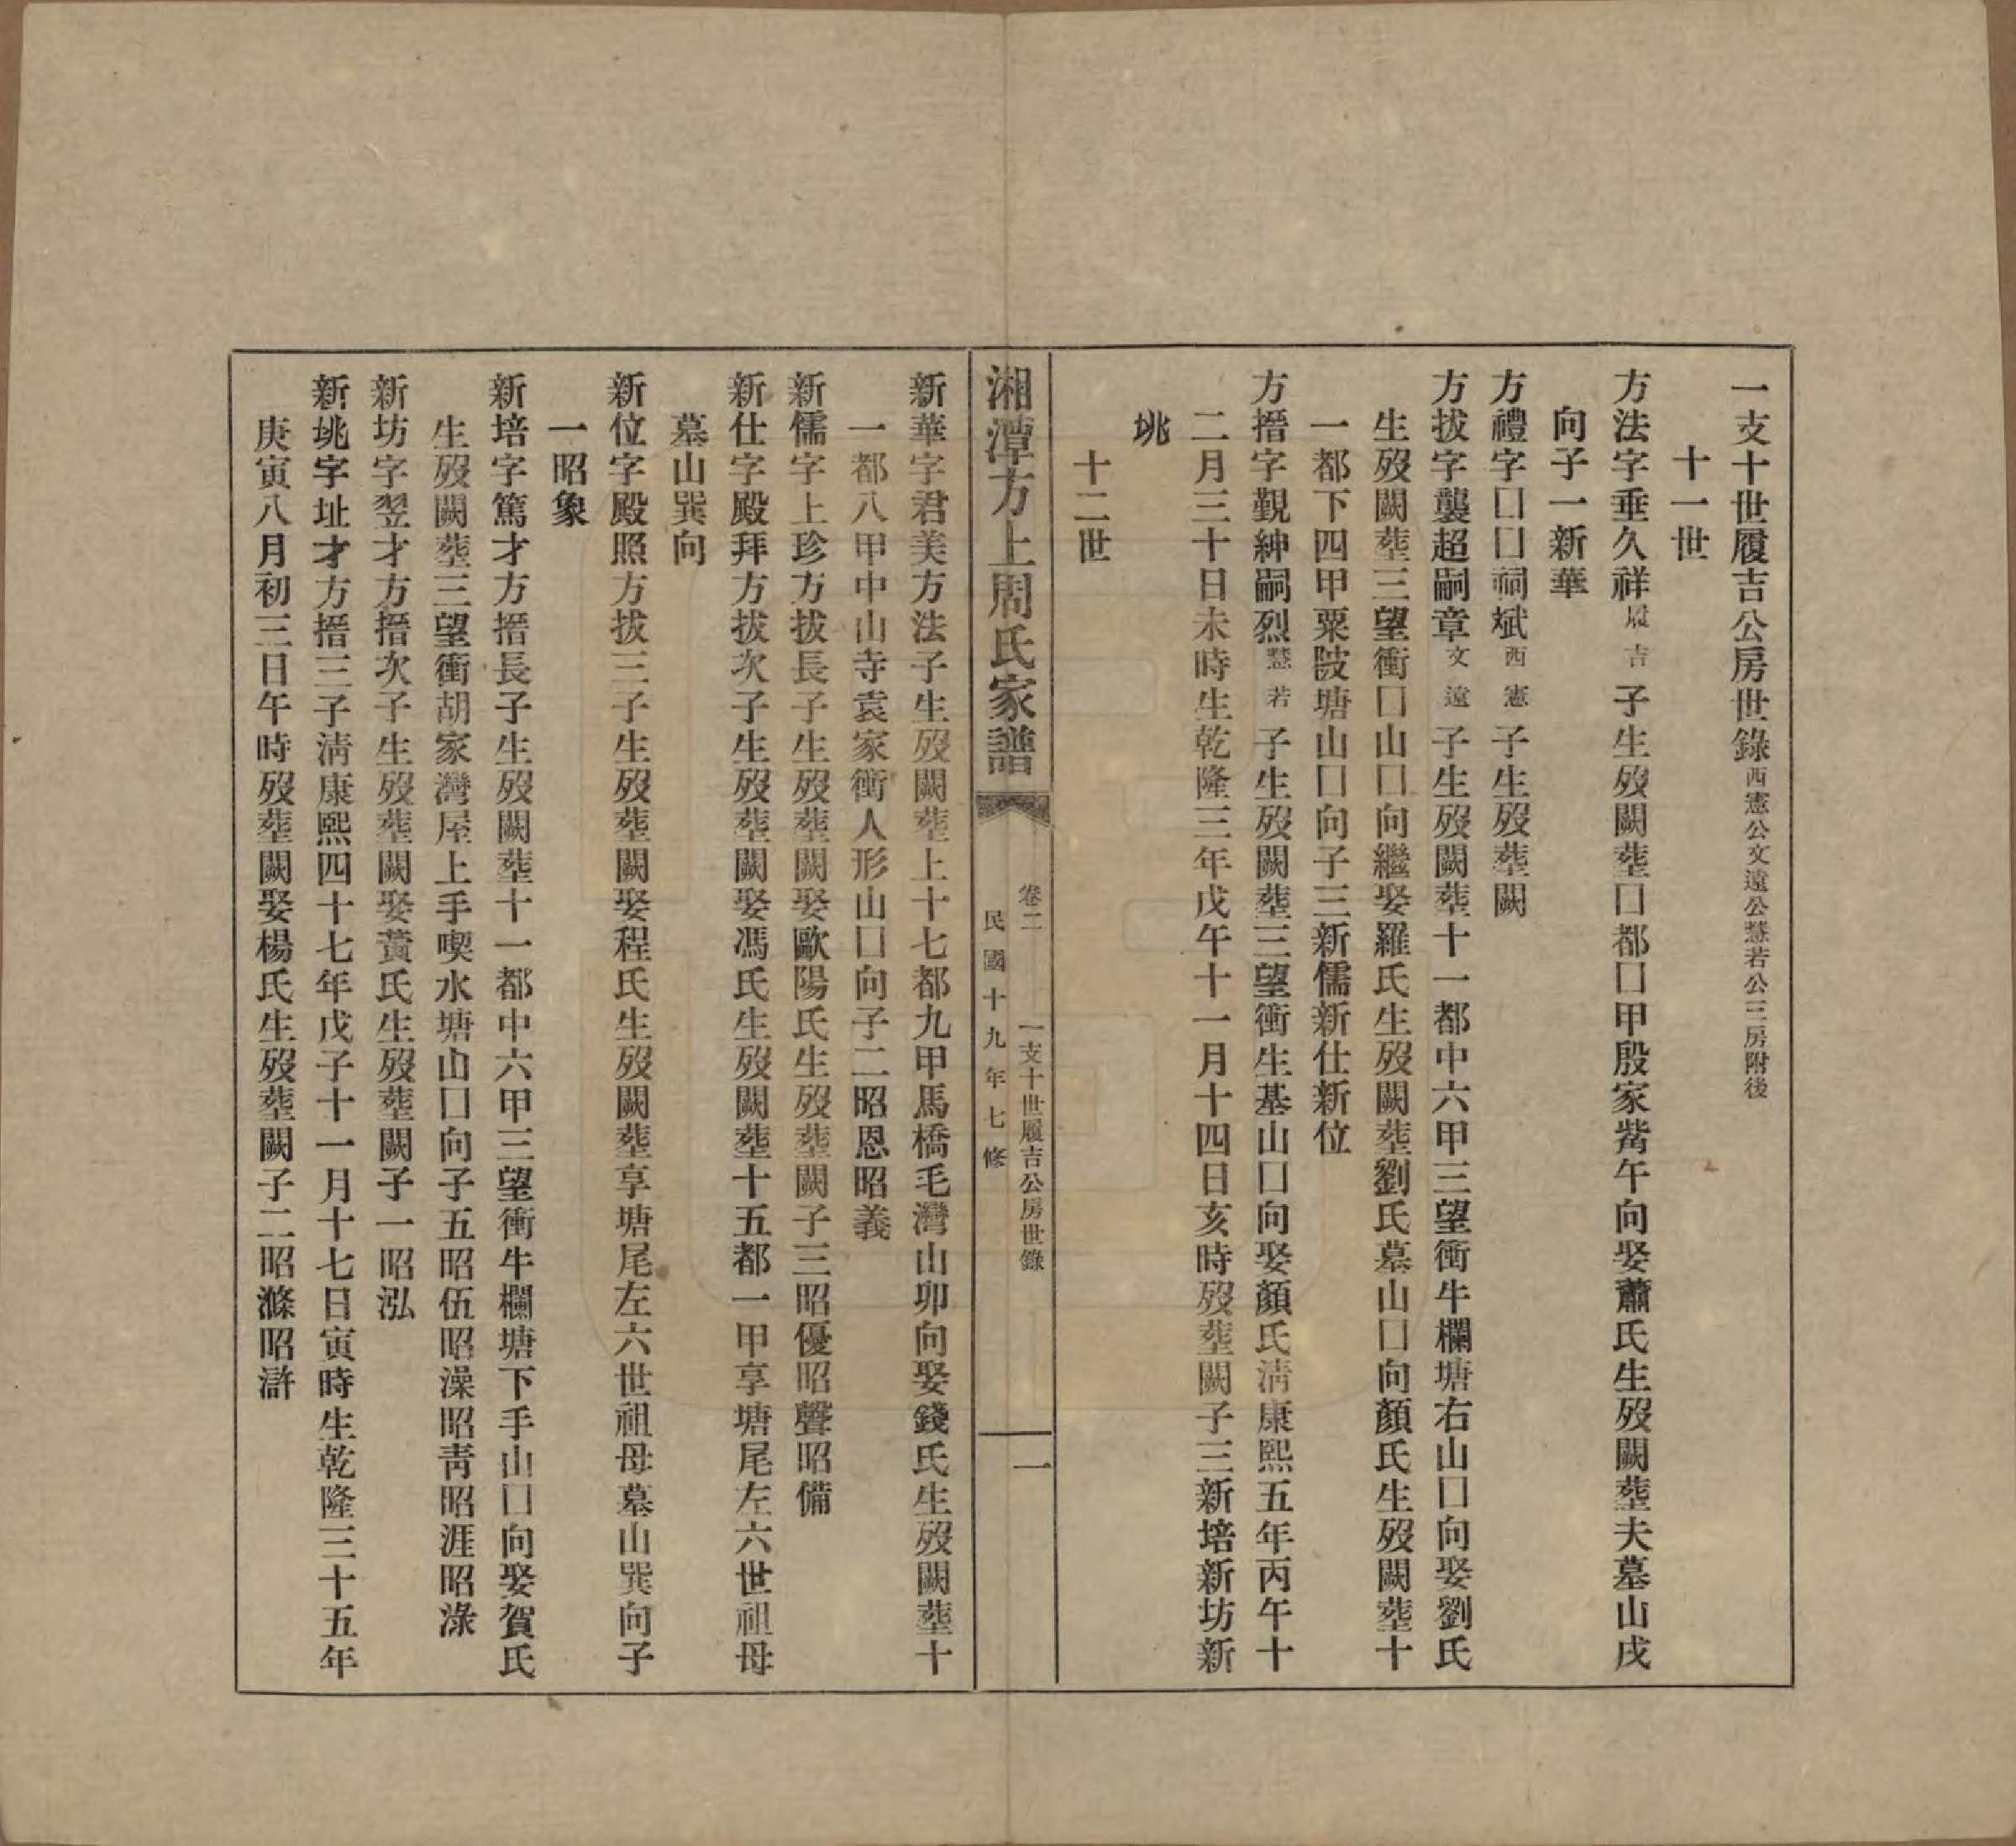 一支十世履吉公房世錄西憲公文遠公慧若公三房附後
十一世
方法字垂久祥履吉子生歿闕葬囗都囗甲殷家觜午向娶蕭氏生歿闕葬夫墓山戌
向子一新華
方禮字囗囗祠斌西憲子生歿葬闕
方拔字襲超嗣章文遠子生歿闕葬十一都中六甲三望衝牛欄塘右山囗向娶劉氏
生歿闕葬三望衝囗山囗向繼娶羅氏生歿闕葬劉氏墓山囗向顏氏生歿闕葬十
一都下四甲粟陂塘山囗向子三新儒新仕新位
方搢字觐紳嗣烈慧若子生歿闕葬三望衝生基山囗向娶顏氏淸康熙五年丙午十
二月三十日未時生乾隆三年戊午十一月十四日亥時歿葬闕子三新培新坊新
垗
十二世
湘潭方上周氏家譜
卷二
一支十世履吉公房世錄
民國十九年七修
一
新華字君美方法子生歿闕葬上十七都九甲馬橋毛灣山卯向娶錢氏生歿闕葬十
一都八甲中山寺袁家衝人形山囗向子二昭恩昭義
新儒字上珍方拔長子生歿葬闕娶歐陽氏生歿葬闕子三昭優昭聲昭備
新仕字殿拜方拔次子生歿葬闕娶馮氏生歿闕葬十五都一甲享塘尾左六世祖母
墓山巽向
新位字殿照方拔三子生歿葬闕娶程氏生歿闕葬享塘尾左六世祖母墓山巽向子
一昭象
新培字篤才方搢長子生歿闕葬十一都中六甲三望衝牛欄塘下手山囗向娶賀氏
生歿闕葬三望衝胡家灣屋上手喫水塘山囗向子五昭伍昭澡昭靑昭涯昭淥
新坊字翌才方搢次子生歿葬闕娶黃氏生歿葬闕子一昭泓
新垗字址才方搢三子淸康熙四十七年戊子十一月十七日寅時生乾隆三十五年
庚寅八月初三日午時歿葬闕娶楊氏生歿葬闕子二昭滌昭滸